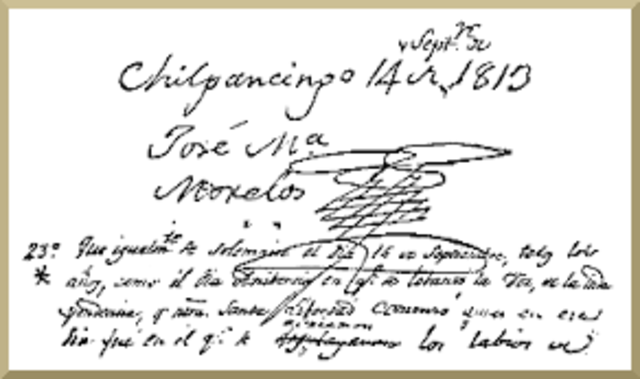 Sept.re de
Chilpancingo 14 de 1813
José Ma.
Morelos
23º Que igualm.te se solemnice el dia 16 de Septiembre, todos los
* años, como el dia Anibersario en q.e se lebanto la Voz, de la Inde
pendencia, y ntra. Santa Libertad Comenzó, pues en ese
abrieron
dia fue en el q.e se desplegaron los labios de